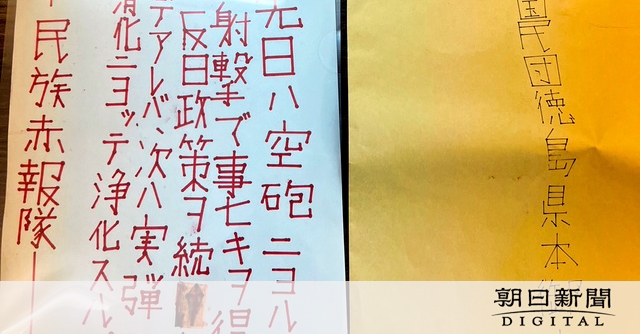 日ハ空砲ニヨル
射撃デ事ナキヲ得
反日政策ヲ続
デアレバ、次ハ実弾
消化ニヨッテ浄化スル
民族赤報隊ー
国民団徳島県本
朝日新聞
DIGITAL